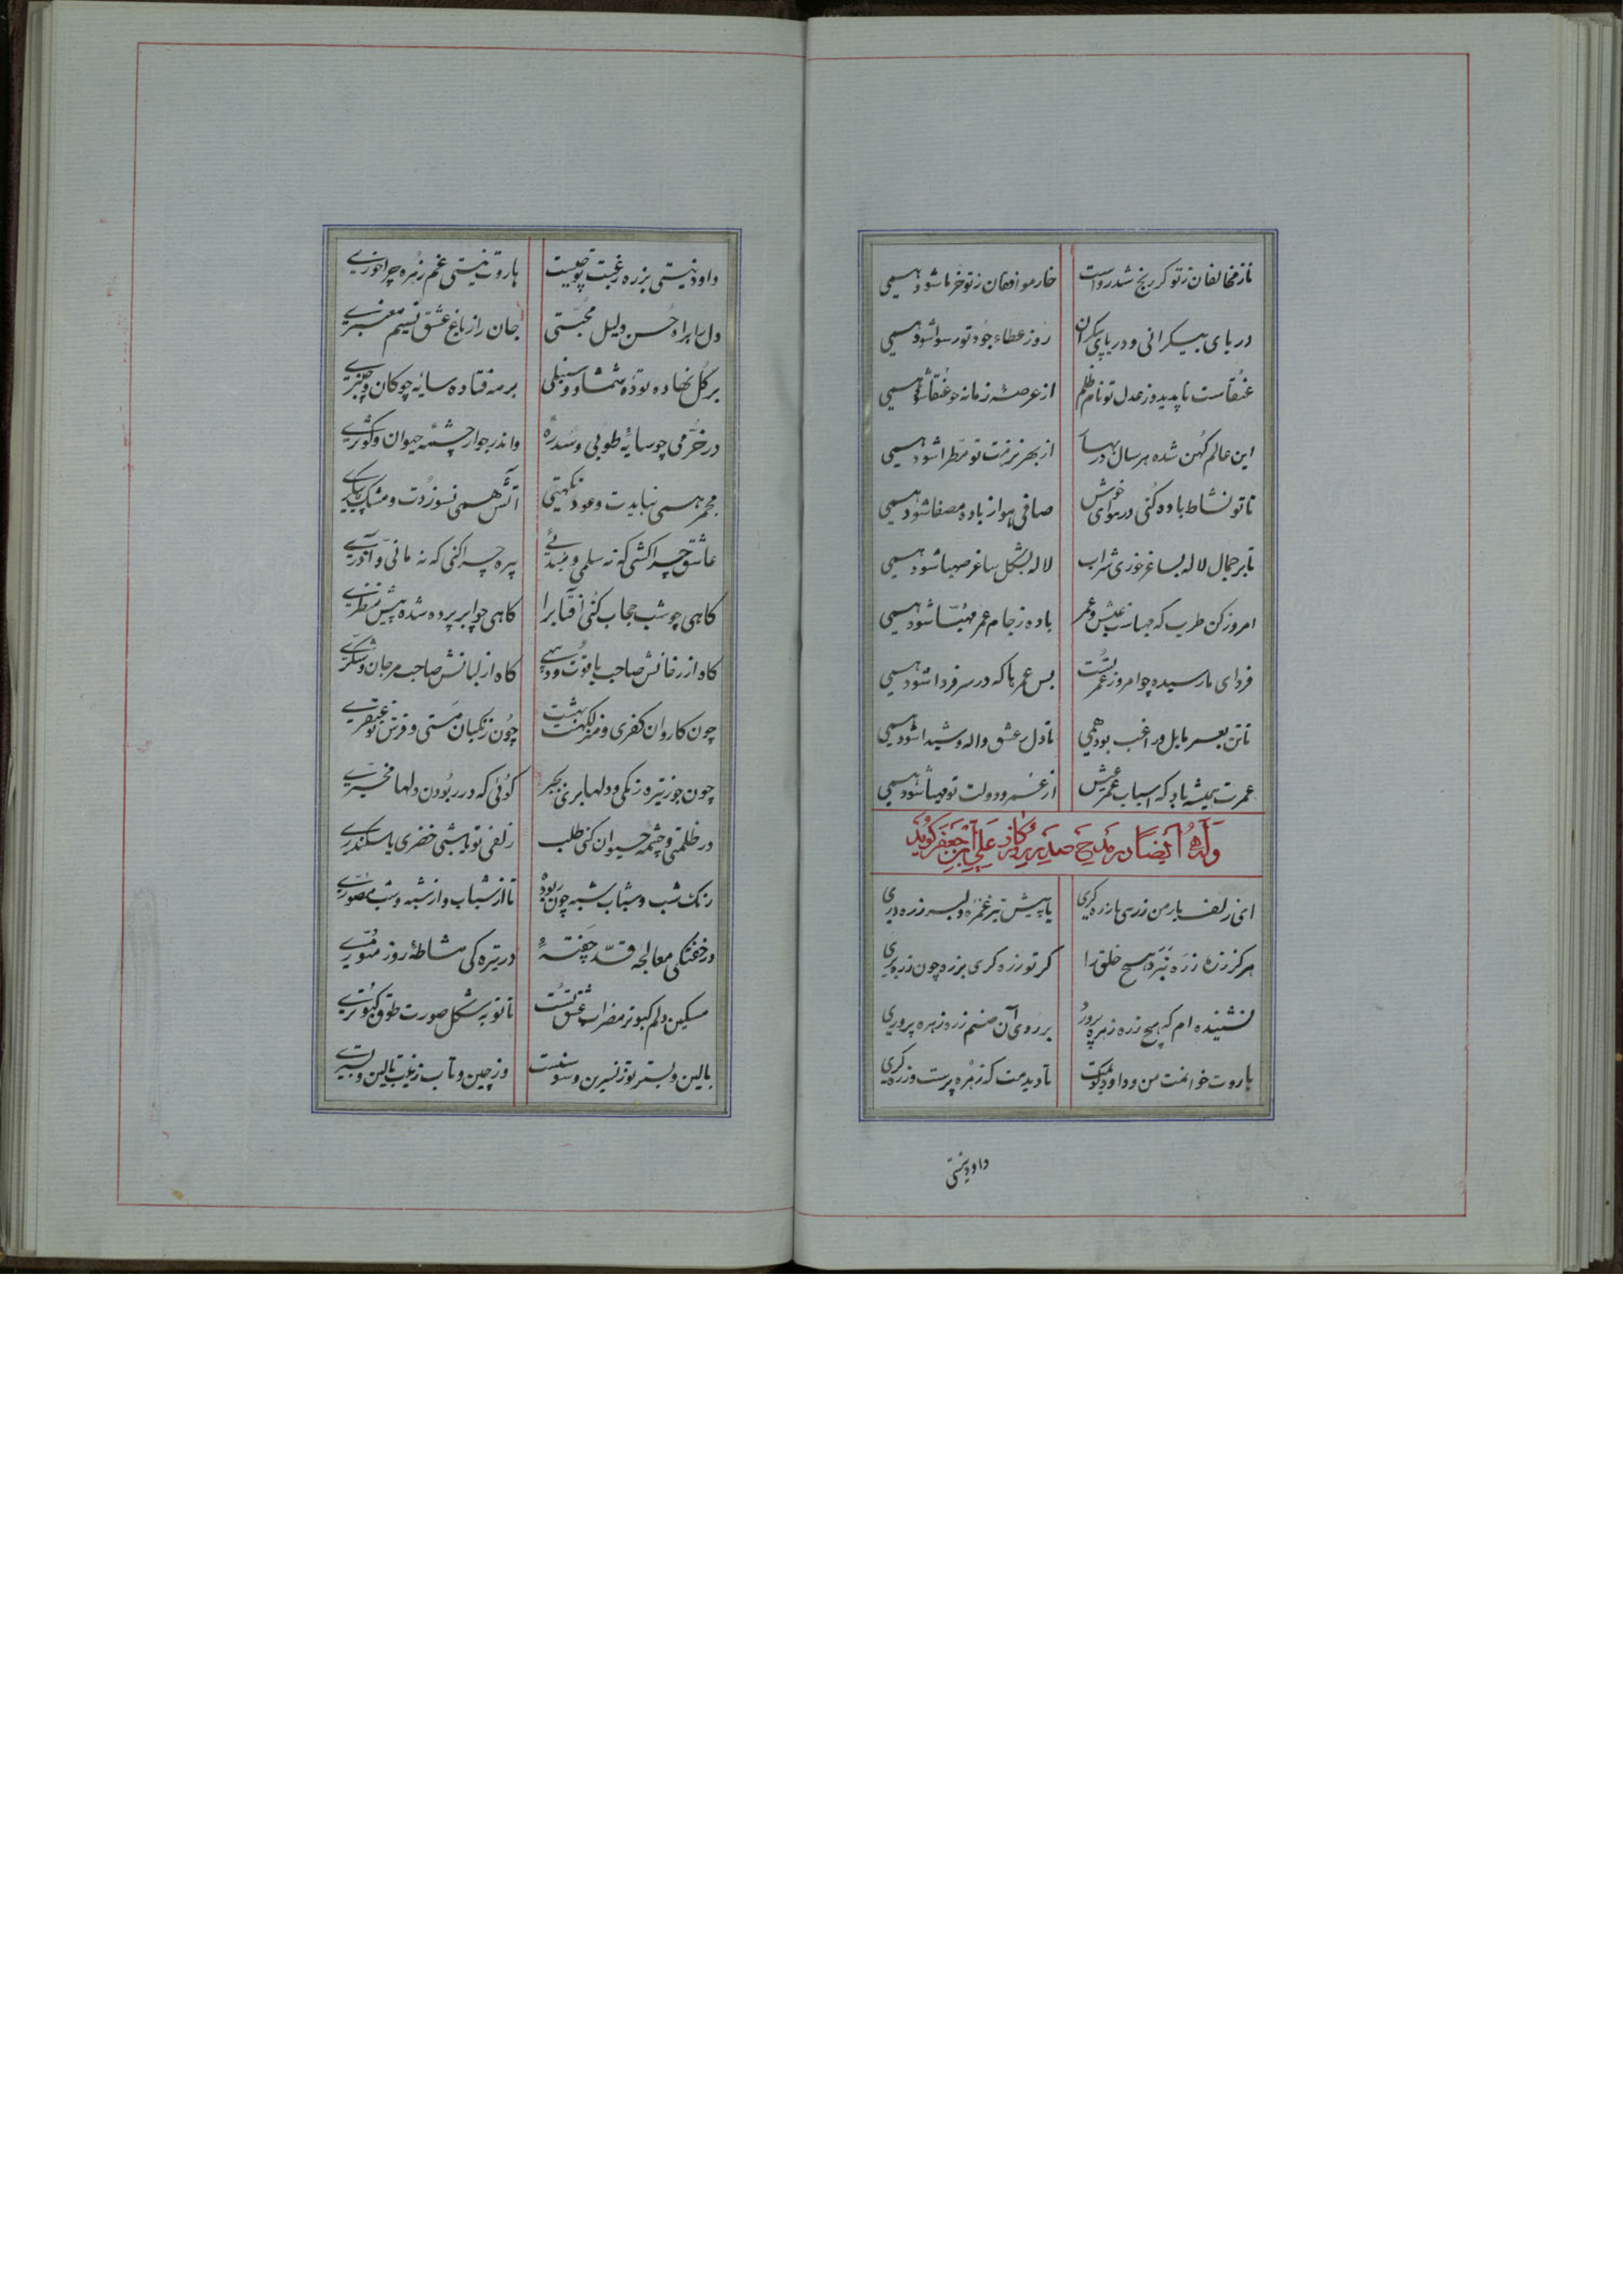 ناز مخالفان ز تو گر رنج شد رواست خار موافقان ز تو خرما شود همی
دریای بیکرانی و دریای بیکران روز عطاء جود تو رسوا شود همی
عنقاست ناپدید و ز عدل تو نام ظلم از عرصه زمانه چو عنقا شود همی
این عالم کهن شده هر سال در بهار از بهر نزهت تو مطرا شود همی
تا تو نشاط باده کنی در هوای خوش صافی هوا ز باده مصفا شود همی
تا بر جمال لاله بساغر خوری شراب لاله بشکل ساغر صهبا شود همی
امروز کن طرب که جهانرا ز عیش و عمر باده ز جام عمر مهیا شود همی
فردای نارسیده چو امروز عمر تست بس عمرها که در سر فردا شود همی
تا تن بعمر مایل و راغب بود همی تا دل ز عشق واله و شیدا شود همی
عمرت همیشه باد که اسباب عمر و عیش از عمر و دولت تو مهیا شود همی
وله ایضا در مدح صدر برکاز علی ابن جعفر گوید
ای زلف یار من زرهی یا زره گری یا پیش تیر غمزه دلبر زره دری
هرگز زنخ زره نبرد هیچ خلق را گر تو زره گری بزره چون زره بری
نشنیده ام که هیچ زره زهره پرورد بر روی آن صنم زره زهره پروری
هاروت خوانمت من و داود گویمت تا دیدمت که زهره پرست و زره گری
داود نیستی
داود نیستی بزره رغبت تو چیست هاروت نیستی غم زهره چرا خوری
دل را براه حسن دلیل محبتی جان را ز باغ عشق نسیم معنبری
بر گل نهاده توده شمشاد و سنبلی بر مه فتاده سایه چوگان و چنبری
در خرمی چو سایه طوبی و سدره واندر جوار چشمه حیوان و کوثری
مجمر همی نبایدت و عود نکهتی آتش همی نسوزدت و مشک پیکری
عاشق چرا کشی که نه سلمی و نه مئی پرده چرا کنی که نه مانی و آذری
گاهی چو شب حجاب کنی آفتابرا گاهی چو ابر پرده شده پیش منظری
گاه از رخانش صاحب یاقوت و گاه از لبانش صاحب مرجان و شکری
چون کاروان کفری و منزلگهت بهشت چون زنگیان مستی و فرش تو عبقری
چون جوز تیره رنگی و دلها بری بجبر گوئی که در ربودن دلها مخیری
در ظلمتی و چشمه حیوان کنی طلب زلفی تو یا شبی خضری یا سکندری
رنگ شب و شباب شبه چون ربوده تا از شباب و از شبه و شب مصوری
در خفتگی معالجه قد چفته در تیره گی مشاطه روز منوری
مسکین دلم کبوتر مضراب عشق تست تا تو به شکل صورت طوق کبوتری
بالین و بستر تو ز نسرین و سوسنست وز چین و تاب زینت بالین و بستری